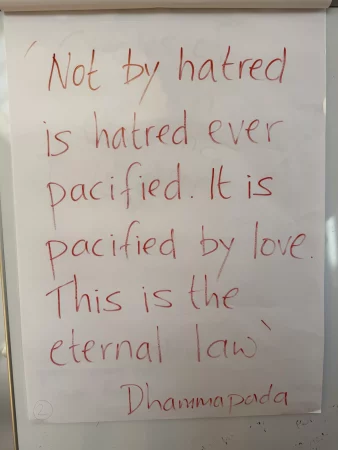 'Not by hatred
is hatred ever
pacified. It is
pacified by love.
This is the
eternal law'
Dhammapada